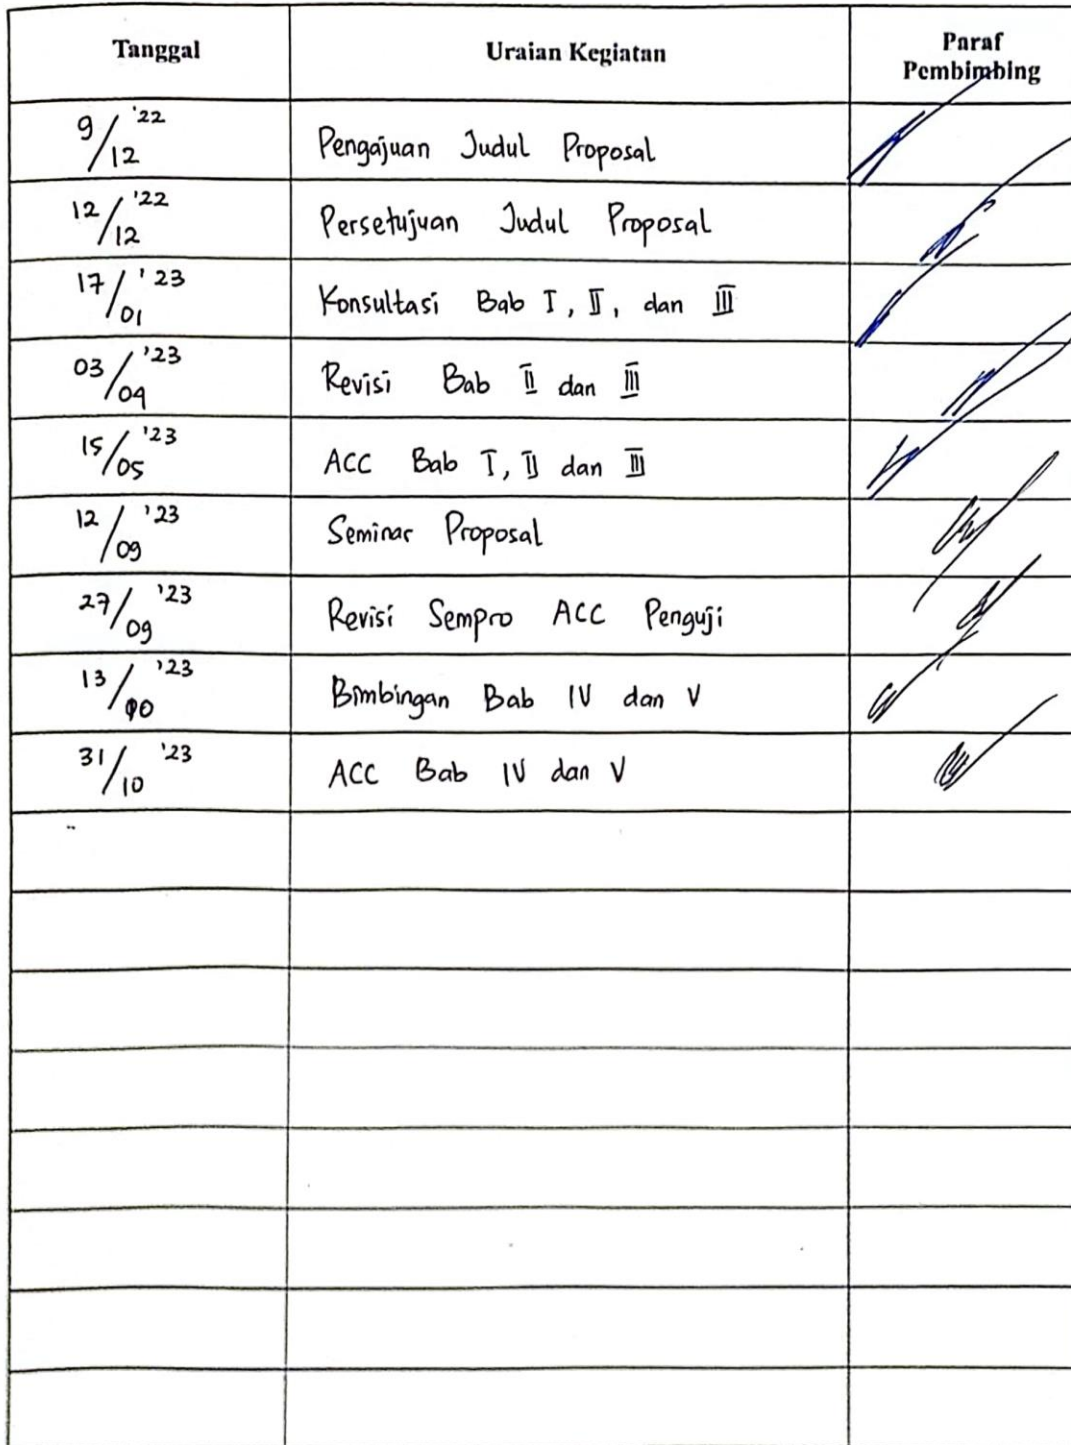 Tanggal Uraian Kegiatan Paraf Pembimbing
9/12 '22 Pengajuan Judul Proposal
12/12 '22 Persetujuan Judul Proposal
17/01 '23 Konsultasi Bab I, II, dan III
03/04 '23 Revisi Bab II dan III
15/05 '23 ACC Bab I, II dan III
12/09 '23 Seminar Proposal
27/09 '23 Revisi Sempro ACC Penguji
13/10 '23 Bimbingan Bab IV dan V
31/10 '23 ACC Bab IV dan V